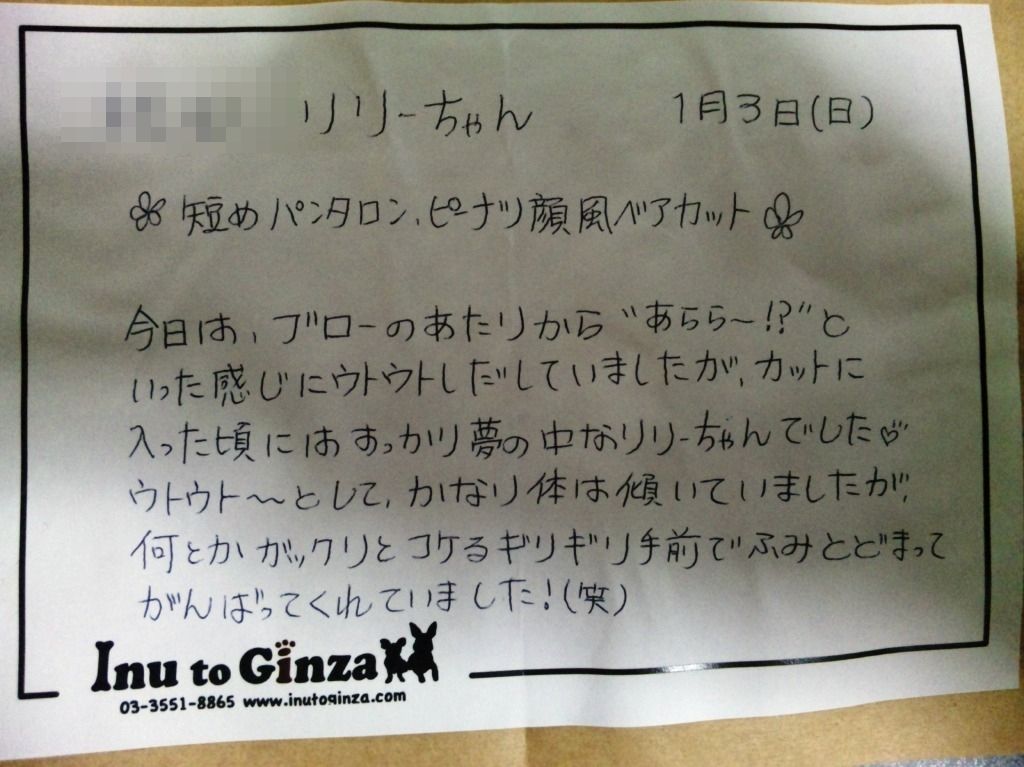 リリーちゃん 1月3日(日)
短めパンタロン、ピーナツ顔風ベアカット
今日は、ブローのあたりから“あらら〜!?”と
いった感じにウトウトしだしていましたが、カットに
入った頃にはすっかり夢の中なリリーちゃんでした♡
ウトウト〜〜として、かなり体は傾いていましたが、
何とかガックリとコケるギリギリ手前でふみとどまって
がんばってくれていました!(笑)
Inu to Ginza
03-3551-8865 www.inutoginza.com